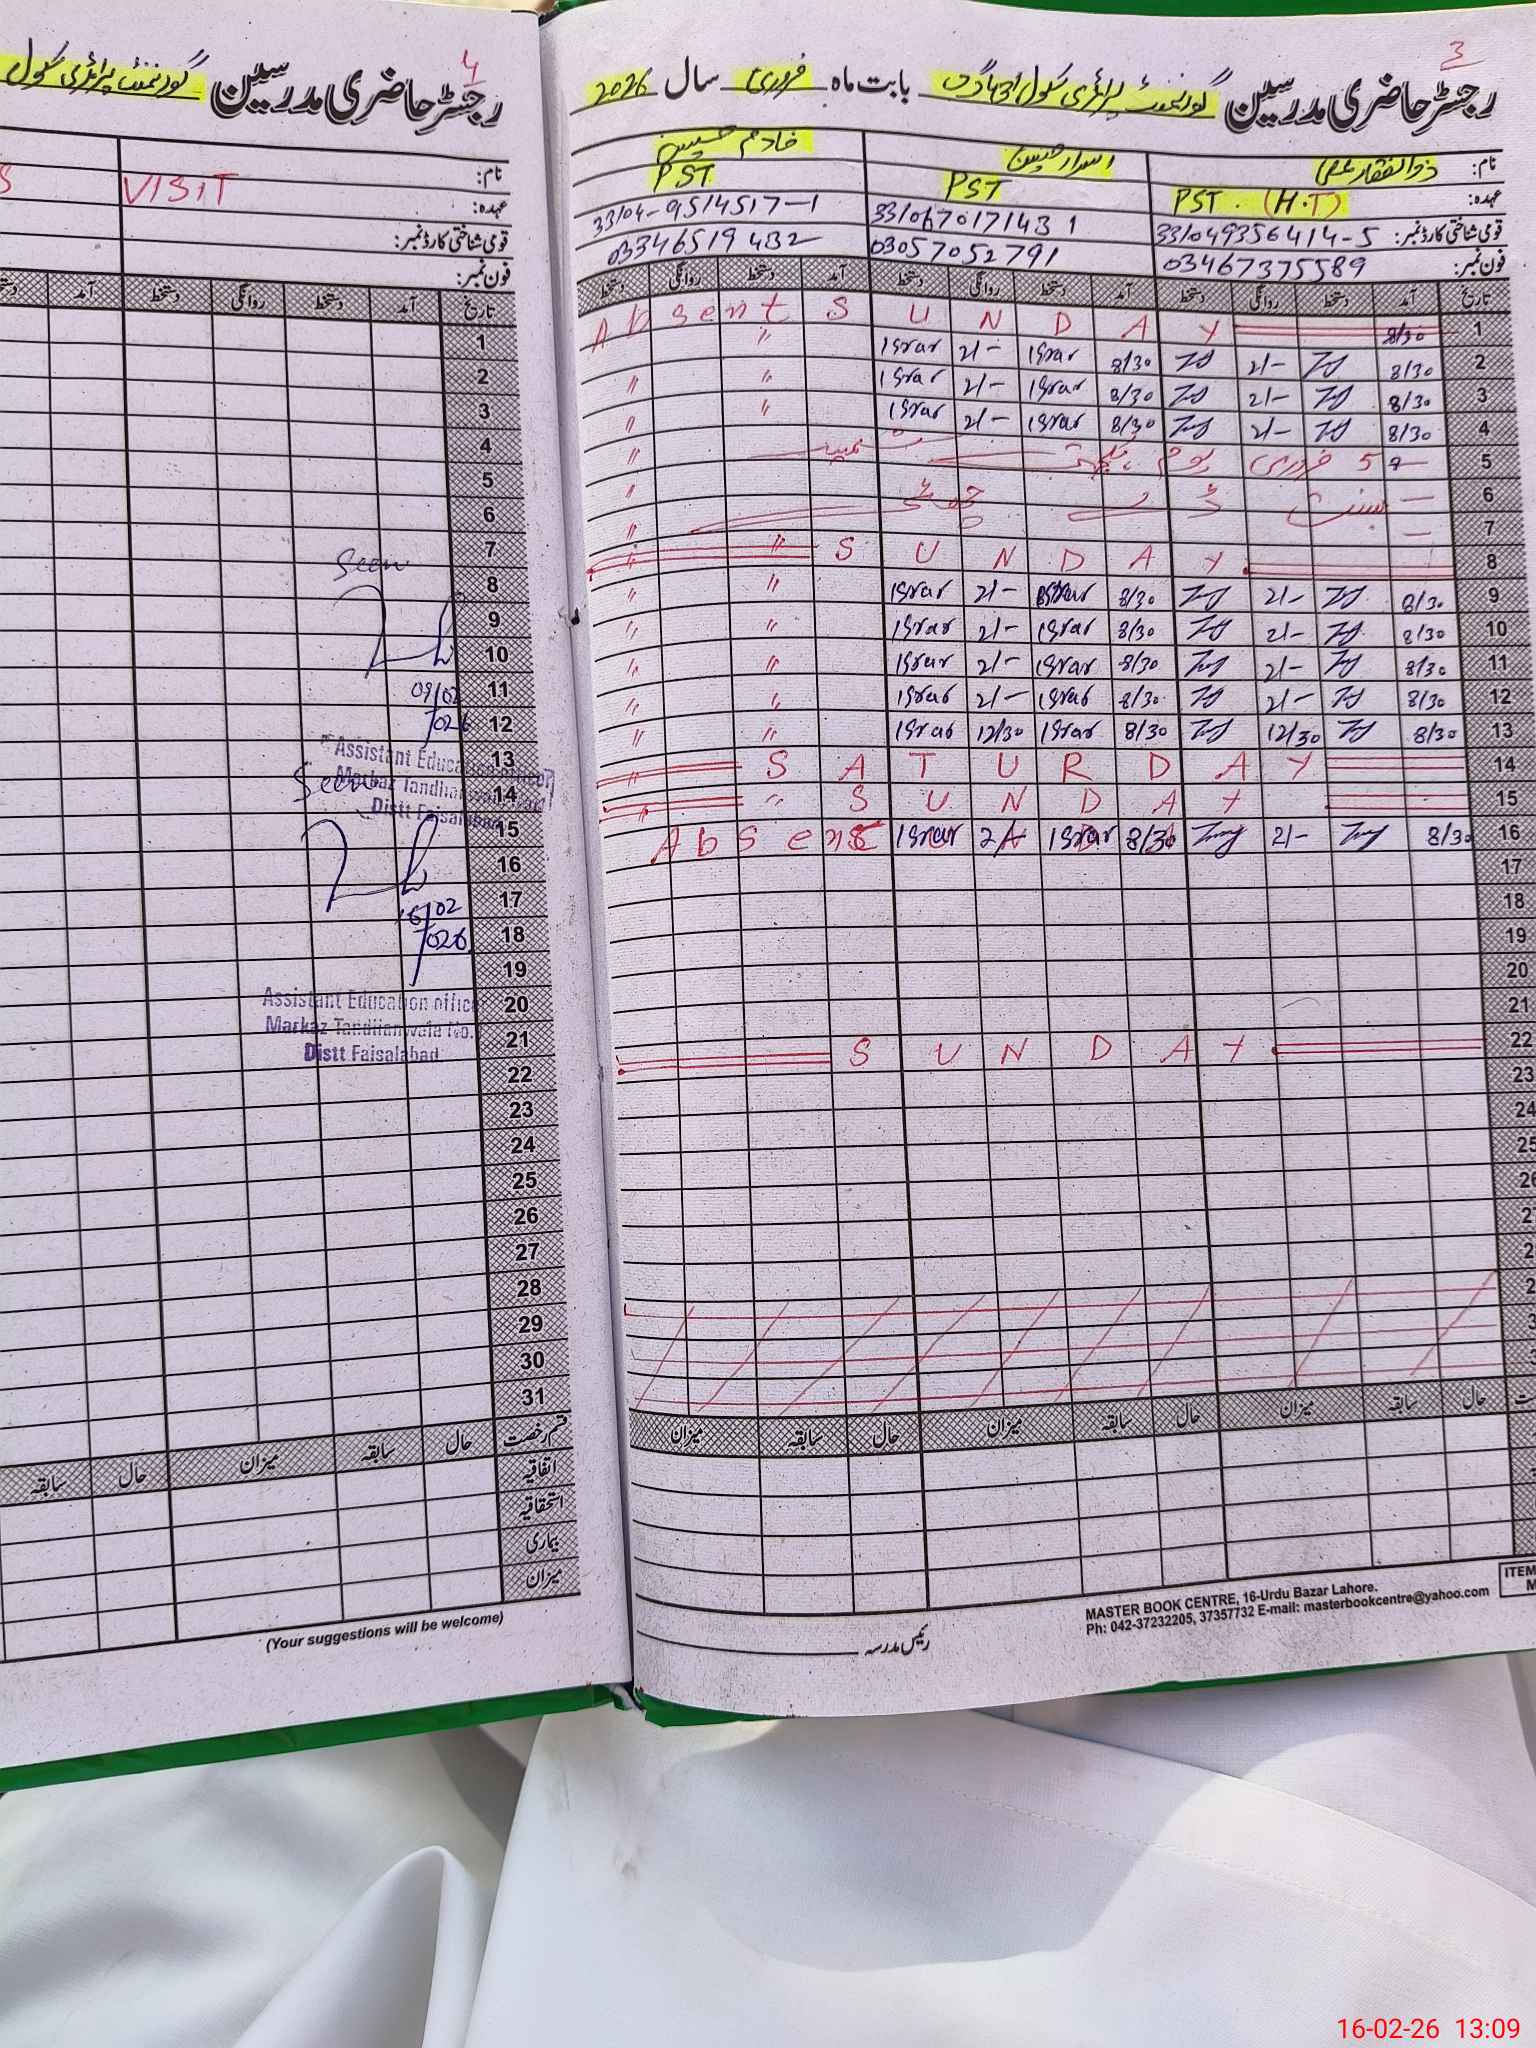 3
رجسٹر حاضری مدرسین گورنمنٹ پرائمری سکول 431 گ ب بابت ماہ فروری سال 2026
نام: ذوالفقار علی اسرار حسین خادم حسین
عہدہ: PST (H.T) PST PST
قومی شناختی کارڈ نمبر: 331049356414-5 3310670171431 33104-9514517-1
فون نمبر: 03467375589 03057052791 03346519432
تاریخ آمد دستخط روانگی دستخط آمد دستخط روانگی دستخط آمد دستخط روانگی دستخط
1 8/30 S U N D A Y Absent
2 8/30 2/- 8/30 Israr 2/- Israr " 
3 8/30 2/- 8/30 Israr 2/- Israr " "
4 8/30 2/- 8/30 Israr 2/- Israr " "
5 5 فروری یوم یکجہتی کشمیر "
6 بسنت کی چھٹی "
7 "
8 S U N D A Y " "
9 8/30 2/- 8/30 Israr 2/- Israr " "
10 8/30 2/- 8/30 Israr 2/- Israr " "
11 8/30 2/- 8/30 Israr 2/- Israr " "
12 8/30 2/- 8/30 Israr 2/- Israr " "
13 8/30 12/30 8/30 Israr 12/30 Israr " "
14 S A T U R D A Y "
15 S U N D A Y " "
16 8/30 2/- 8/30 Israr Israr Absent
17
18
19
20
21
22 S U N D A Y
23
24
25
حال سابقہ میزان حال سابقہ میزان حال سابقہ میزان
رئیس مدرسہ
MASTER BOOK CENTRE, 16-Urdu Bazar Lahore.
Ph: 042-37232205, 37357732 E-mail: masterbookcentre@yahoo.com
ITEM
4
رجسٹر حاضری مدرسین گورنمنٹ پرائمری سکول
نام:
VISIT
عہدہ:
قومی شناختی کارڈ نمبر:
فون نمبر:
تاریخ آمد دستخط روانگی دستخط آمد
1
2
3
4
5
6
7
Seen
8
9
10
11
09/02
12
/026
13
Assistant Education officer
14
Seen
Markaz Tandlianwala
Distt Faisalabad
15
16
17
16/02
18
/026
19
20
Assistant Education office
Markaz Tandlianwala No.
21
Distt Faisalabad
22
23
24
25
26
27
28
29
30
31
قسم رخصت حال سابقہ میزان حال سابقہ
اتفاقیہ
استحقاقیہ
بیماری
میزان
(Your suggestions will be welcome)
16-02-26 13:09